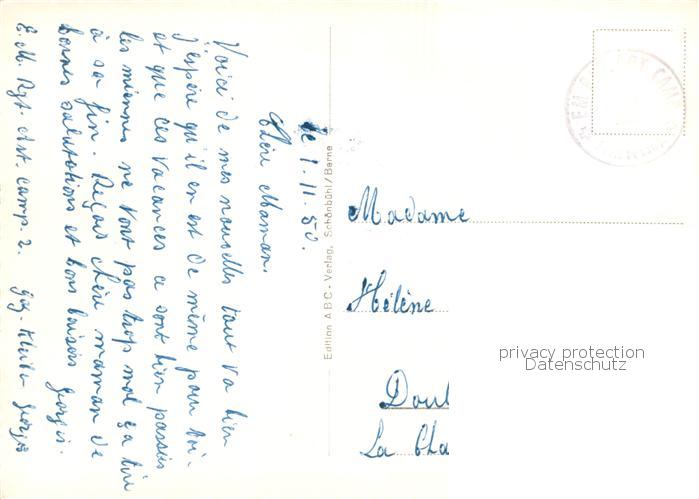 le 1.11.50.
Chère Maman.
Voici de mes nouvelles tout va bien
j'espère qu'il en est de même pour toi.
et que ces vacances ce sont bien passées
les miennes ne vont pas trop mal ça tire
à sa fin. Reçois chère maman de
bonnes salutations et bons baisers Georges.
E.M. Rgt. Art. camp. 2. Georges
Edition ABC - Verlag, Schönbühl/Berne
Madame
Hélène
Doul
La Cha
privacy protection
Datenschutz